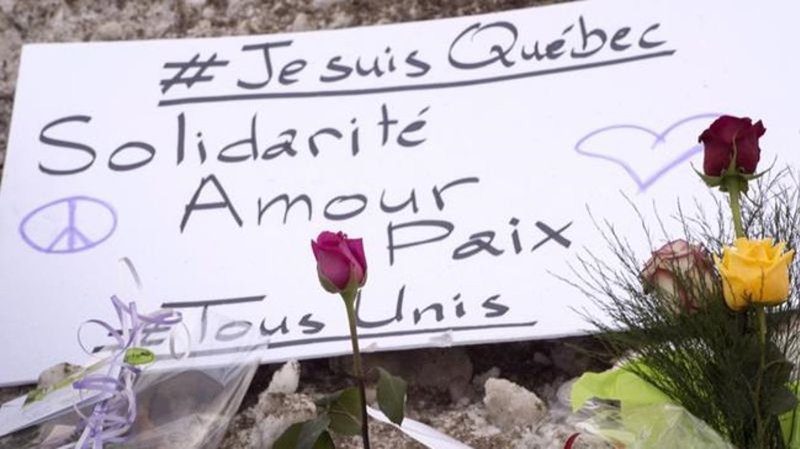 #Je suis Québec
Solidarité
Amour
Paix
#Tous Unis